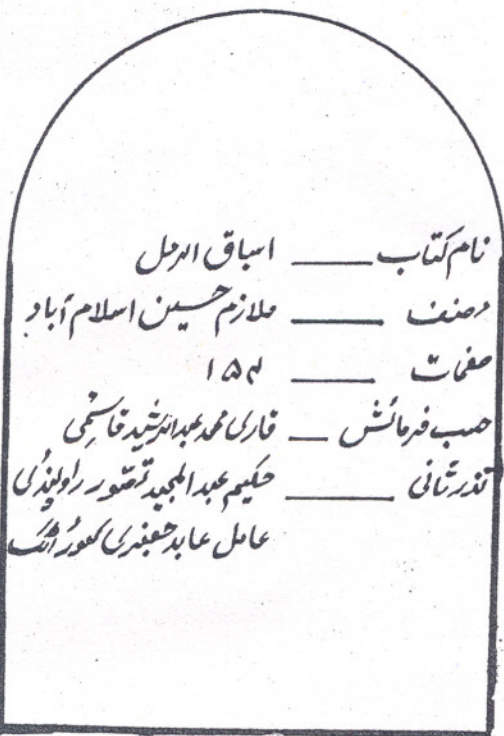 نام کتاب ـــــ اسباق الرمل
مصنف ـــــ ملازم حسین اسلام آباد
صفحات ـــــ ۱۵۴
حسب فرمائش ـــ قاری محمد عبدالرشید قاسمی
نذر ثانی ـــــ حکیم عبدالمجید تصور راولپنڈی
عامل عابد جعفری کھوڑ اٹک